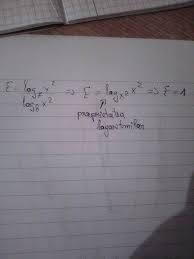 E = log x² / log₈ x² ⇒ E = log x² ⇒ E = 1
proprietatea
logaritmilor